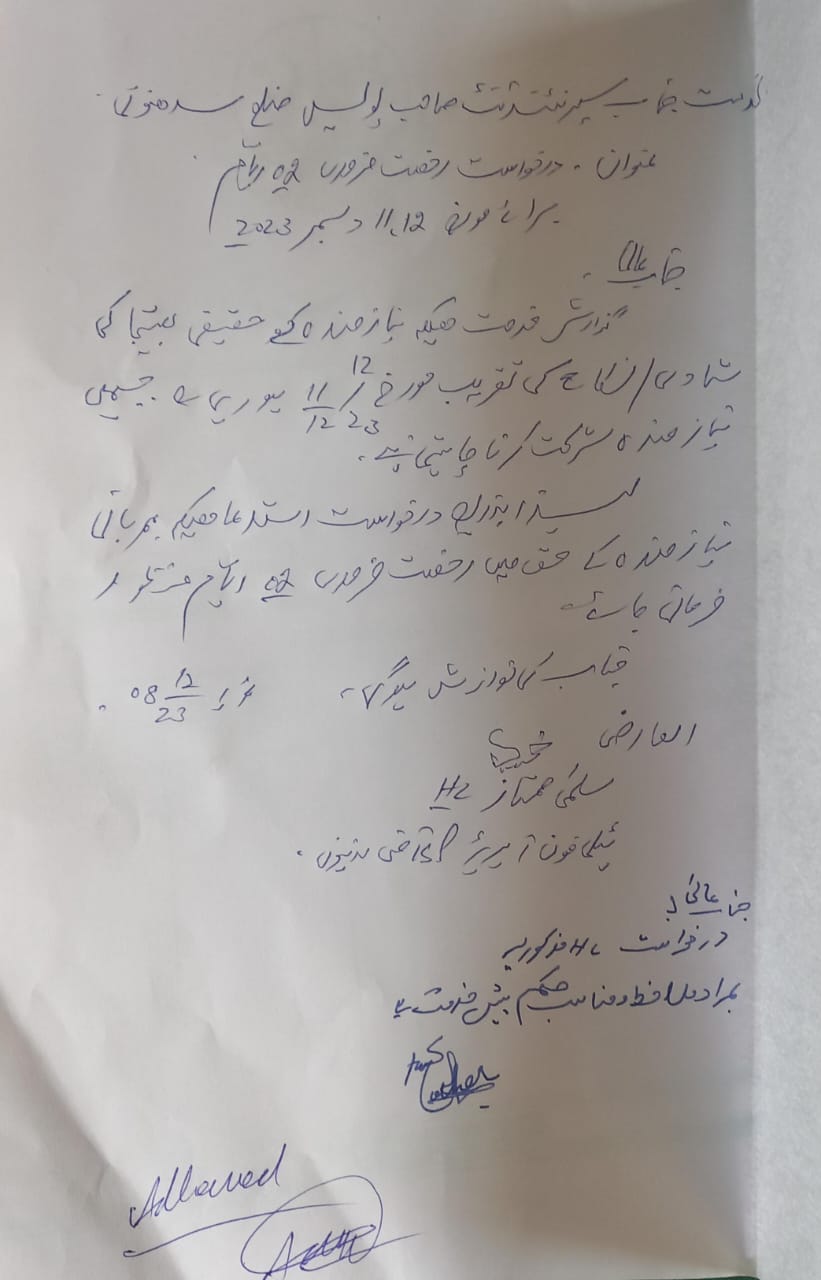 بخدمت جناب سپرنٹنڈنٹ صاحب پولیس ضلع سدھنوتی
عنوان ۔ درخواست رخصت ضروری 02 ایام
برائے مورخہ 11،12 دسمبر 2023
جناب عالی
گزارش خدمت ہیکہ نیازمندہ کے حقیقی بھتیجا کی
شادی/نکاح کی تقریب مورخہ 11/12 12 23 ہو رہی ہے۔ جسمیں
نیازمندہ شرکت کرنا چاہتی ہے۔
لہذا بذریعہ درخواست استدعا ہیکہ بمہربانی
نیازمندہ کے حق میں رخصت ضروری 02 ایام منظور
فرمائی جائے
جناب کی نوازش ہوگی۔ 08 12/23 ۔
العارضی
سلمیٰ ممتاز HC
ٹیلی فون آپریٹر
جناب عالی!
درخواست HC مذکوریہ
بمراد ملاحظہ و مناسب حکم پیش خدمت ہے
Allowed